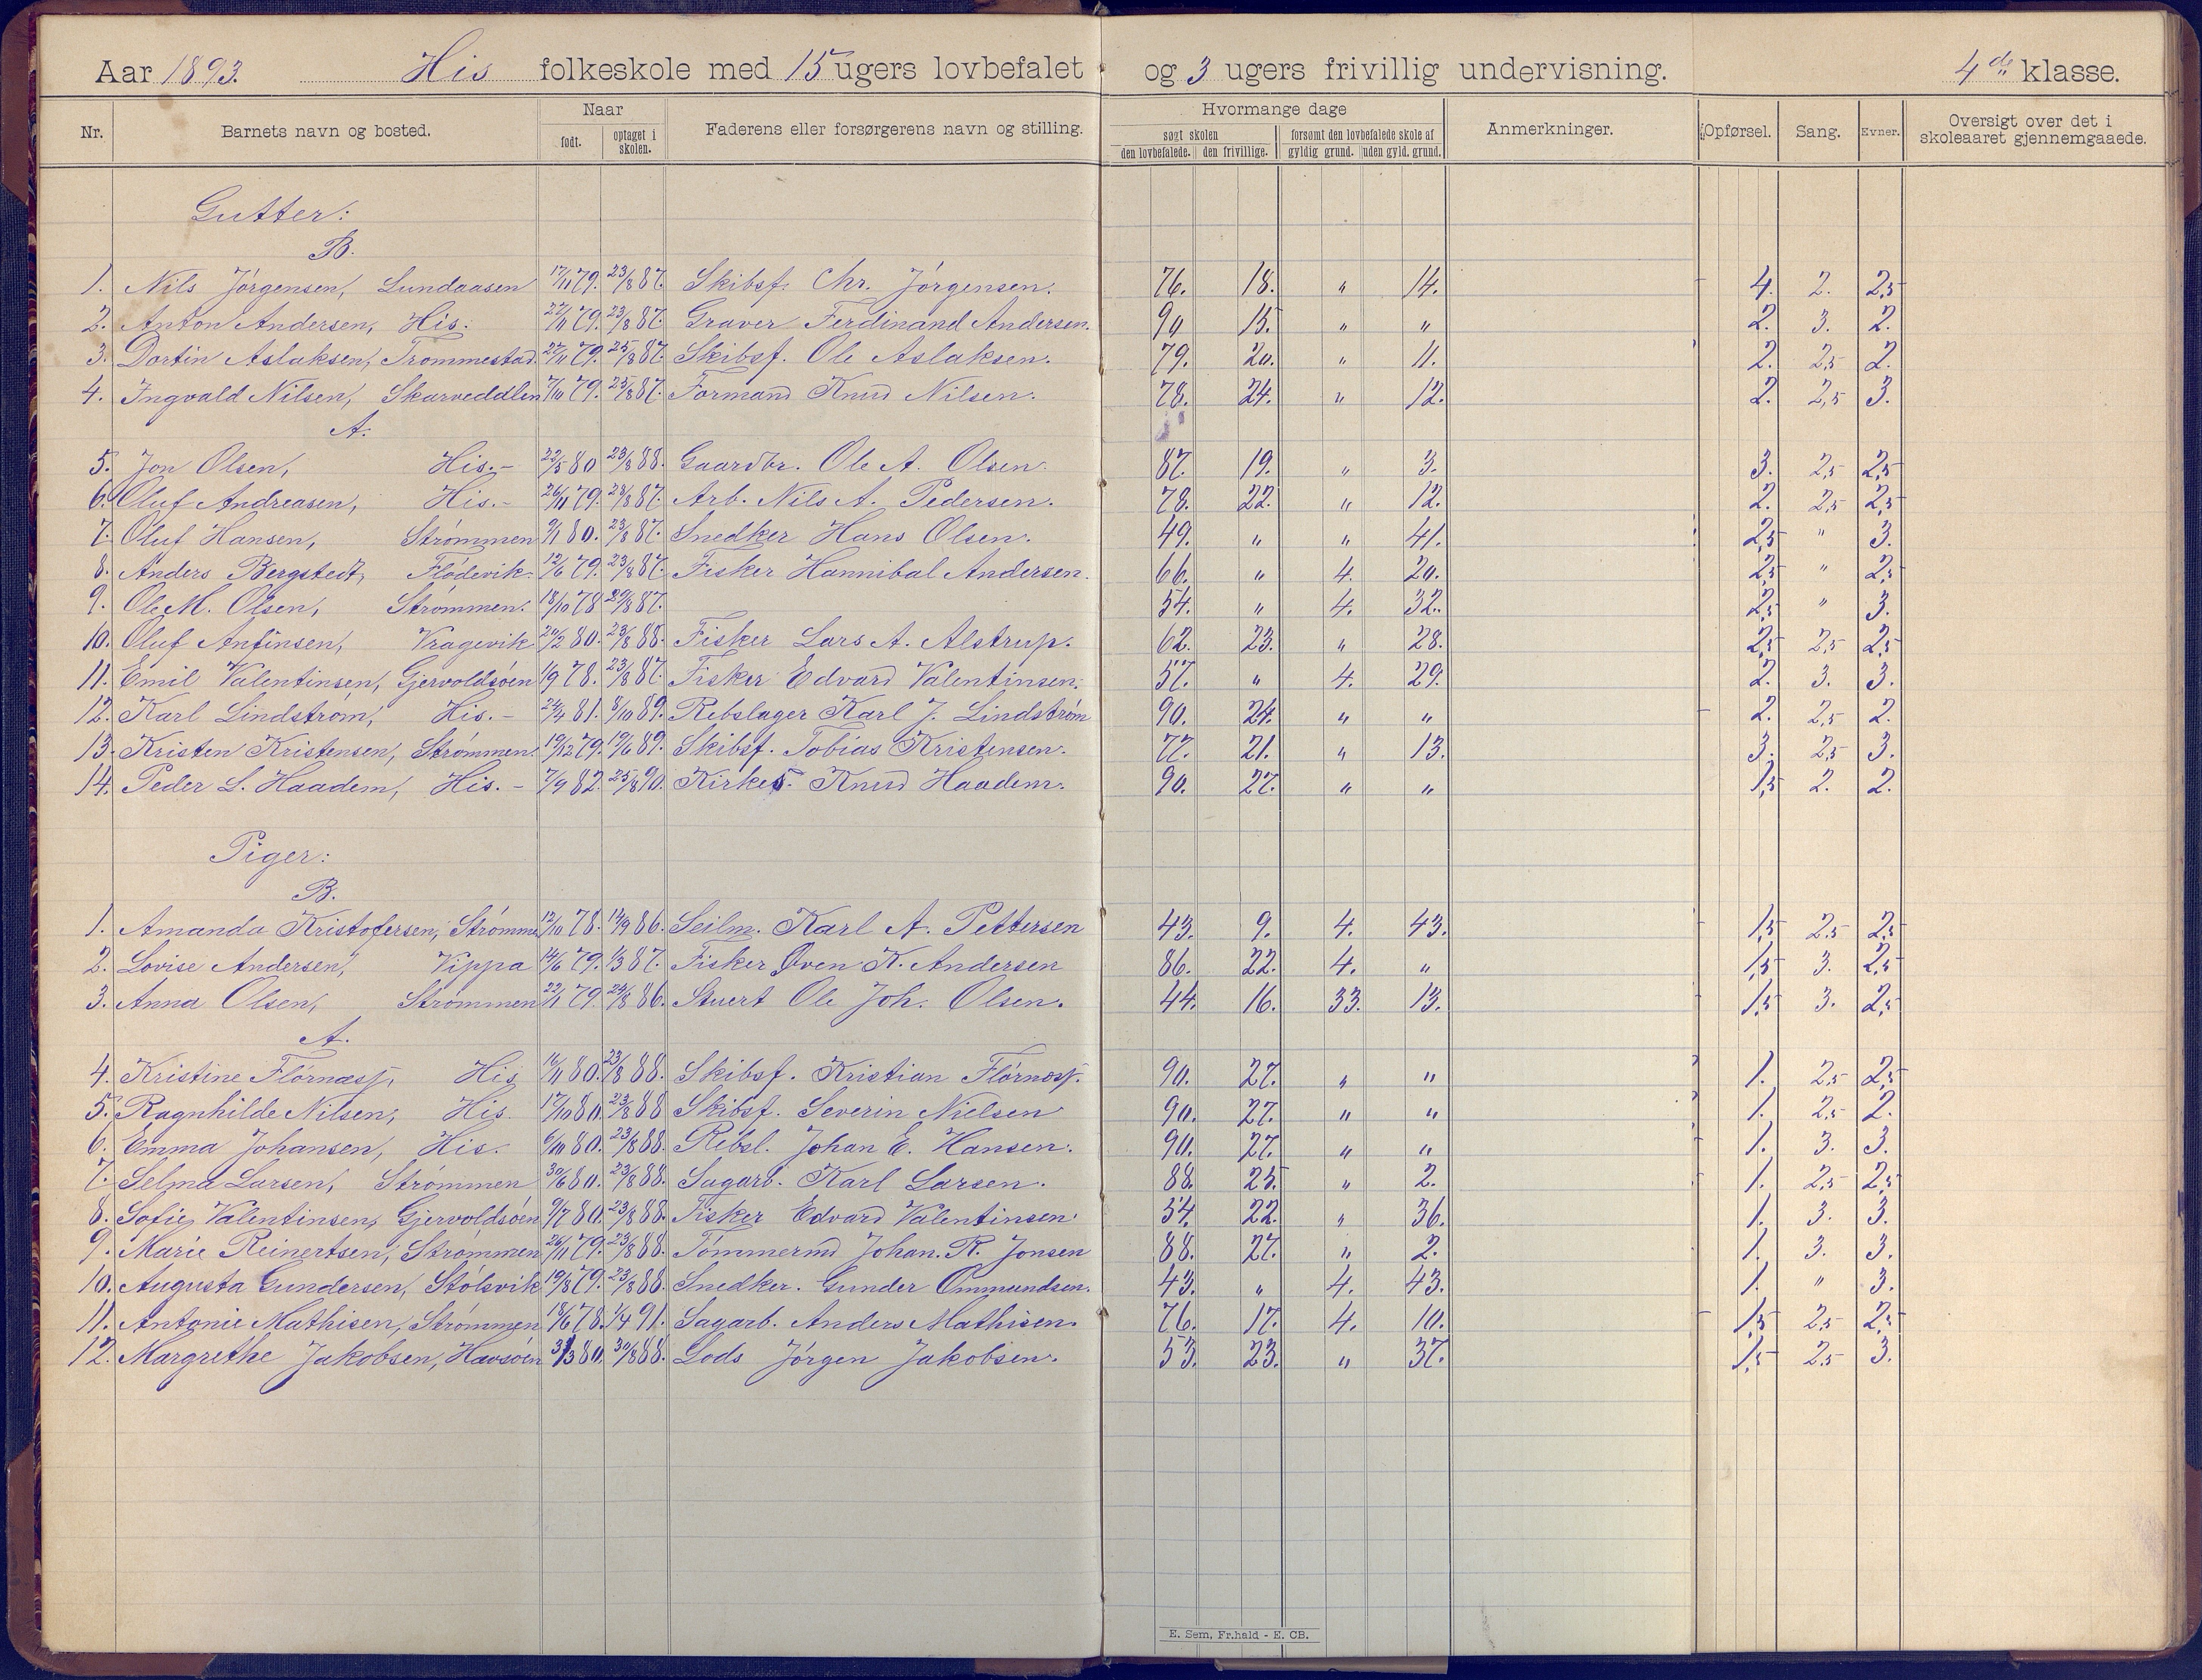 Aar 1893. His folkeskole med 15 ugers lovbefalet og 3 ugers frivillig undervisning. 4de klasse.
Nr. Barnets navn og bosted. Naar født. optaget i skolen. Faderens eller forsørgerens navn og stilling. Hvormange dage søgt skolen den lovbefalede. den frivillige. forsømt den lovbefalede skole af gyldig grund. uden gyld. grund. Anmerkninger. Opførsel. Sang. Evner. Oversigt over det i skoleaaret gjennemgaaede.
Gutter:
B.
1. Nils Jörgensen, Lundaasen 17/11 79. 23/8 87. Skibsf. Chr. Jörgensen. 76. 18. " 14. 4. 2. 2,5
2. Anton Andersen, His. 22/11 79. 23/8 87. Graver Ferdinand Andersen. 90 15. " " 2. 3. 2.
3. Dortin Aslaksen, Trommestad. 27/11 79. 25/8 87. Skibsf. Ole Aslaksen. 79. 20. " 11. 2. 2,5 2.
4. Ingvald Nilsen, Skarveddlen 7/10 79. 25/8 87. Formand Knud Nilsen. 78. 24. " 12. 2. 2,5 3.
A.
5. Jon Olsen, His. - 22/5 80 23/8 88. Gaardbr. Ole A. Olsen. 87. 19. " 3. 3. 2,5 2,5
6. Oluf Andreasen, His. - 26/11 79. 23/8 87. Arb. Nils A. Pedersen. 78. 22. " 12. 2. 2,5 2,5
7. Oluf Hansen, Strömmen 9/1 80. 23/8 87. Snedker Hans Olsen. 49. " " 41. 2,5 " 3.
8. Anders Bergstedt, Flödevik. 12/6 79. 23/8 87. Fisker Hannibal Andersen. 66. " 4. 20. 2,5 " 2,5
9. Ole M. Olsen, Strömmen. 18/10 78 29/8 87. 54. " 4. 32. 2,5 " 3.
10. Oluf Anfinsen, Vragevik 20/2 80. 23/8 88. Fisker Lars A. Alstrup. 62. 23. " 28. 2,5 2,5 2,5
11. Emil Valentinsen, Gjervoldsöen 1/9 78. 23/8 87. Fisker Edvard Valentinsen. 57. " 4. 29. 2. 3. 3.
12. Karl Lindstrom, His. - 24/4 81. 8/10 89. Rebslager Karl J. Lindström 90. 24. " " 2. 2,5 2.
13. Kristen Kristensen, Strömmen. 19/12 79. 19/6 89. Skibsf. Tobias Kristensen. 77. 21. " 13. 3. 2,5 3.
14. Peder L. Haadem, His. - 7/9 82. 25/8 90. Kirkes. Knud Haadem. 90. 27. " " 1,5 2. 2.
Piger:
B.
1. Amanda Kristofersen, Strömmen 12/10 78. 14/9 86. Seilm. Karl A. Pettersen 43. 9. 4. 43. 1,5 2,5 2,5
2. Lovise Andersen, Vippa 14/6 79. 1/3 87. Fisker Even K. Andersen 86. 22. 4. " 1,5 3. 2,5
3. Anna Olsen, Strömmen 22/1 79. 24/8 86. Stuert Ole Joh. Olsen. 44. 16. 33. 13. 1,5 3. 2,5
A.
4. Kristine Flörnæss, His 16/11 80. 23/8 88. Skibsf. Kristian Flörnæss. 90. 27. " " 1. 2,5 2,5
5. Ragnhilde Nilsen, His. 17/10 80. 23/8 88 Skibsf. Severin Nielsen 90. 27. " " 1. 2,5 2.
6. Emma Johansen, His. 6/10 80. 23/8 88. Rebsl. Johan E. Hansen. 90. 27. " " 1. 3. 3.
7. Selma Larsen, Strömmen 30/6 80. 23/8 88. Sagarb. Karl Larsen. 88. 25. " 2. 1. 2,5 2,5
8. Sofie Valentinsen, Gjervoldsöen 9/7 80. 23/8 88. Fisker Edvard Valentinsen. 54. 22. " 36. 1. 3. 3.
9. Marie Reinertsen, Strömmen 26/11 79. 23/8 88. Tömmermd Johan. R. Jonsen 88. 27. " 2. 1. 3. 3.
10. Augusta Gundersen, Stölsvik 19/8 79. 23/8 88. Snedker. Gunder Ommundsen. 43. " 4. 43. 1. " 3.
11. Antonie Mathisen, Strömmen 18/6 78. 1/4 91. Sagarb. Anders Mathisen. 76. 17. 4. 10. 1,5 2,5 2,5
12. Margrethe Jakobsen, Havsöen 31/3 80. 30/8 88. Lods Jörgen Jakobsen. 53. 23. " 37. 1,5 2,5 3.
E. Sem, Fr.hald - E. CB.